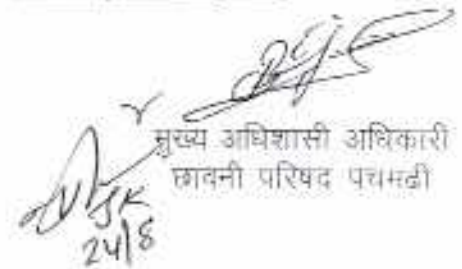 मुख्य अधिशासी अधिकारी
छावनी परिषद पचमढी
24/8